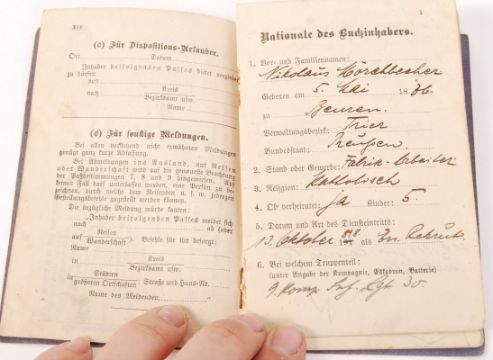 XIV
(c) Für Dispositions-Urlauber.
Ort Datum
Inhaber beifolgenden Passes bittet verziehen
zu dürfen
von
Kreis
nach
Bezirksamt usw.
Name
(d) Für sonstige Meldungen.
Bei allen vorstehend nicht erwähnten Meldungen
genügt ganz kurze Abfassung.
Bei Abmeldungen ins Ausland, auf Reisen
oder Wanderschaft wird auf die genaueste Beachtung
der Paßbestimmungen 7, 8 und 9 hingewiesen. Auf
keinen Fall darf unterlassen werden, eine Person zu be-
zeichnen, durch welche dem Reisenden u. s. w. jederzeit
Gestellungsbefehle zugestellt werden können.
Die bezügliche Meldung würde lauten:
"Inhaber beifolgenden Passes meldet sich
nach ab
auf Reisen
Wanderschaft). Befehle für ihn besorgt:
Name
in Kreis
Bezirksamt usw.
in Städten
größeren Ortschaften) Straße und Haus-Nr.
Name des Meldenden
1
Nationale des Buchinhabers.
1. Vor- und Familiennamen:
Nikolaus
Geboren am 5. Mai 1876.
zu Beuren.
Verwaltungsbezirk: Trier
Bundesstaat: Preußen.
2. Stand oder Gewerbe: Fabrik-Arbeiter
3. Religion: Katholisch
4. Ob verheiratet: ja Kinder: 5.
5. Datum und Art des Diensteintritts:
13. Oktober als Rekrut.
6. Bei welchem Truppenteil:
(unter Angabe der Kompagnie, Eskadron, Batterie)
9. Komp. Inf. Rgt. 30.